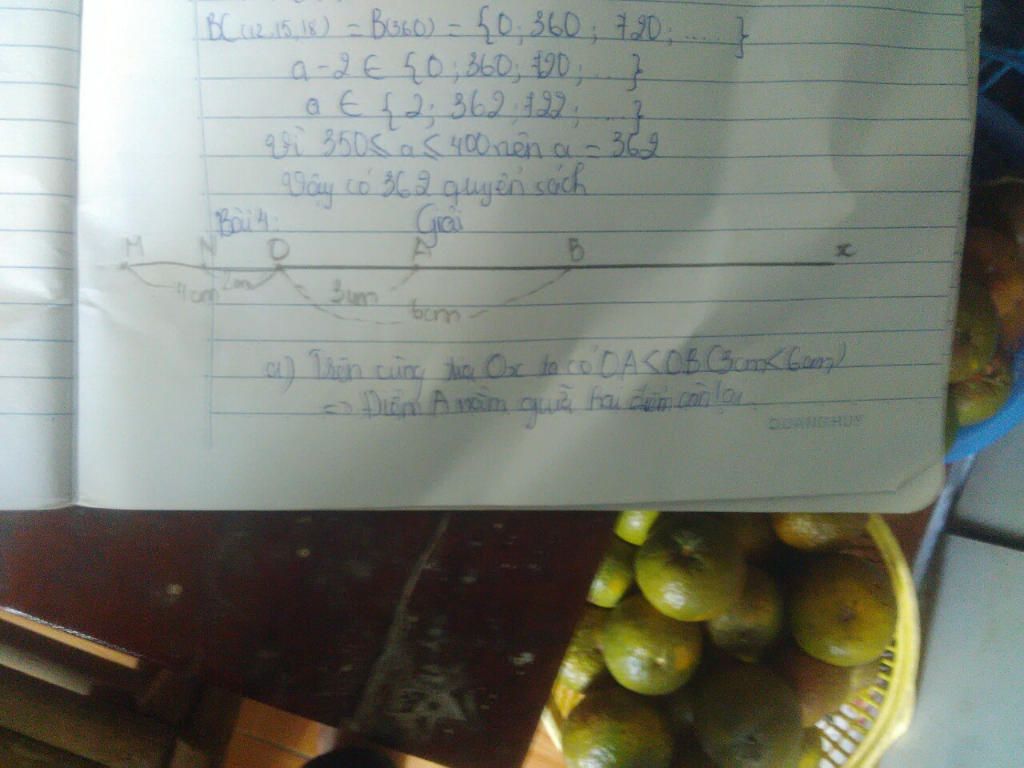 BC(12,15,18) = B(360) = {0; 360; 720; .... }
a-2 ∈ {0; 360; 720; ... }
a ∈ {2; 362; 722; ... }
Vì 350 ≤ a ≤ 400 nên a = 362
Vậy có 362 quyển sách
Bài 4: Giải
M N O A B x
4cm 2cm 3cm
6cm
a) Trên cùng tia Ox ta có OA < OB (3cm < 6cm)
=> Điểm A nằm giữa hai điểm còn lại.
QUANG HUY